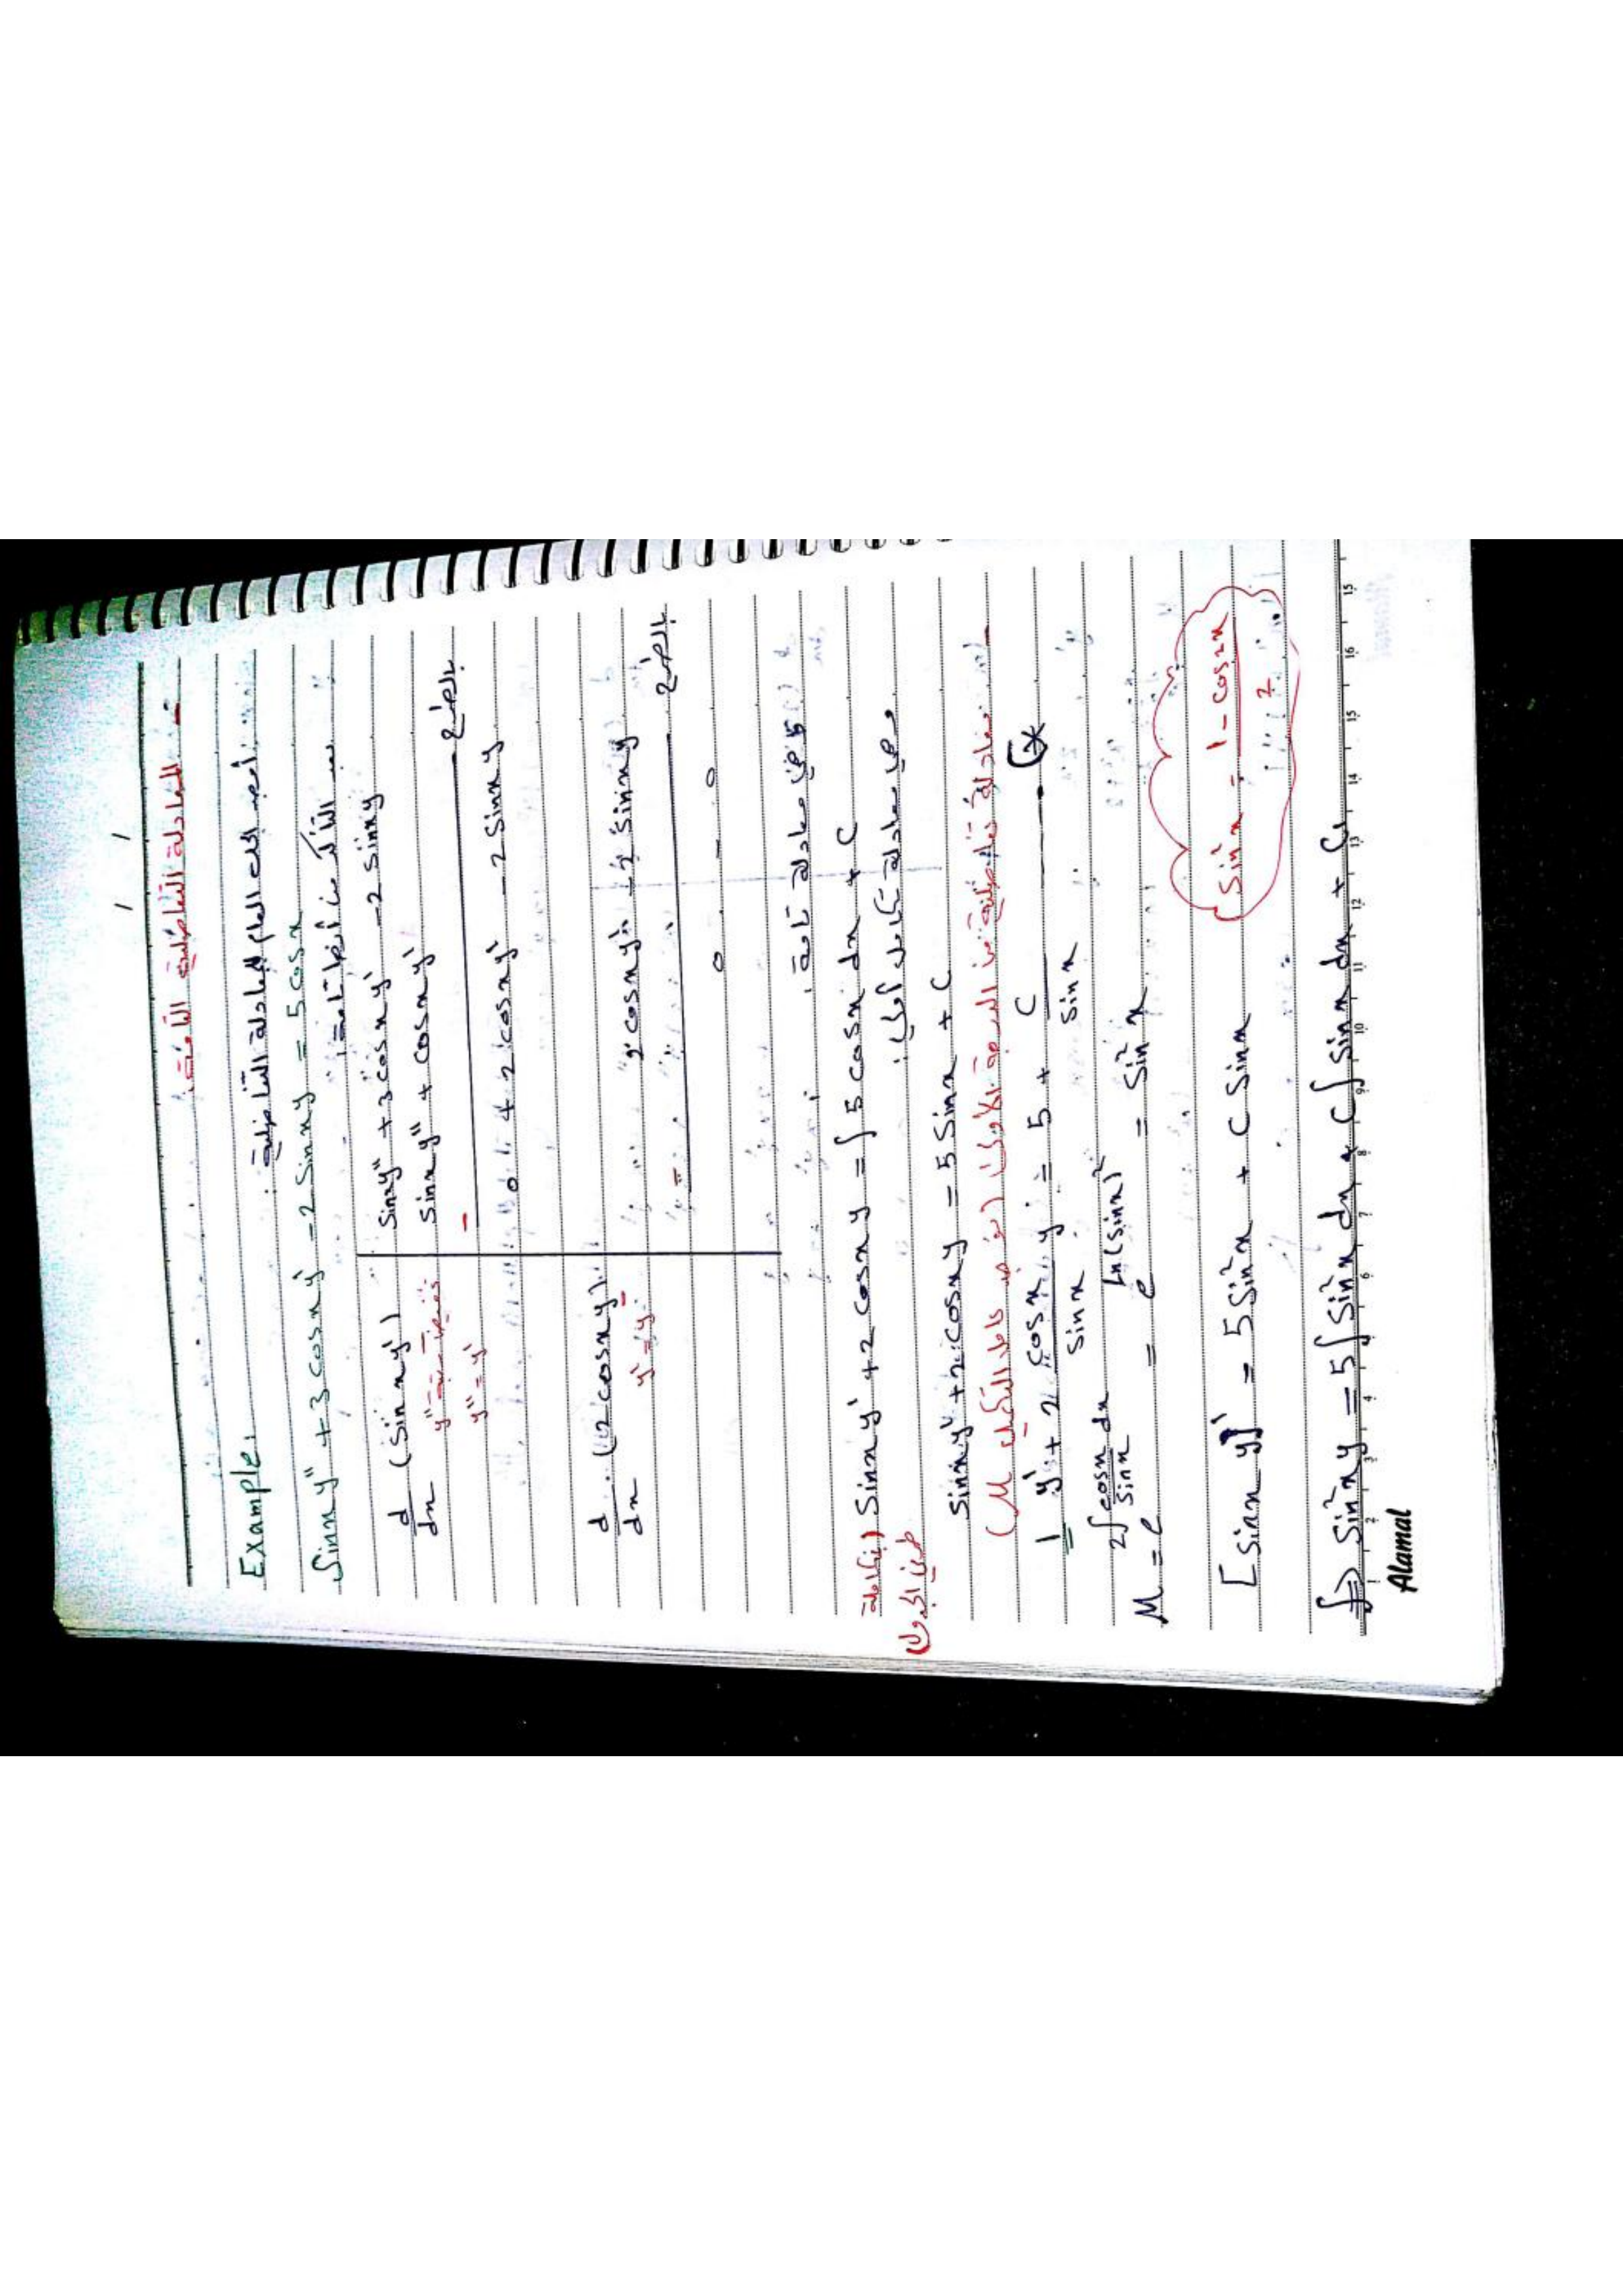 المعادلة التفاضلية التامة:
Example,
أوجد الحل العام للمعادلة التفاضلية:
Sinx y'' + 3 cosx y' - 2 Sinx y = 5 cosx
التأكد من أنها تامة:
d/dx (Sinx y')
Sinx y'' + 3 cosx y' - 2 Sinx y
y'' = y'
Sinx y'' + cosx y'
بالطرح
0 + 2 cosx y' - 2 Sinx y
d/dx (2 cosx y)
y' = y
2 cosx y' - 2 Sinx y
بالطرح
0 - 0
هي معادلة تامة
Sinx y' + 2 cosx y = ∫ 5 cosx dx + C
طرفي الجدول
هي معادلة تكامل أولى:
Sinx y' + 2 cosx y = 5 Sinx + C
معادلة تفاضلية من الدرجة الأولى (نوجد عامل التكميل M)
1 y' + 2 cosx/Sinx y = 5 + C/Sinx (*
M = e^{2∫ cosx/Sinx dx} = e^{Ln(Sinx)^2} = Sin²x
Sin²x = 1 - cos2x / 2
[Sinx y]' = 5 Sin²x + C Sinx
∫⇒ Sin²x y = 5 ∫ Sin²x dx + C ∫ Sinx dx + C₁
1 2 3 4 5 6 7 8 9 10 11 12 13 14 15 16 15
Alamal